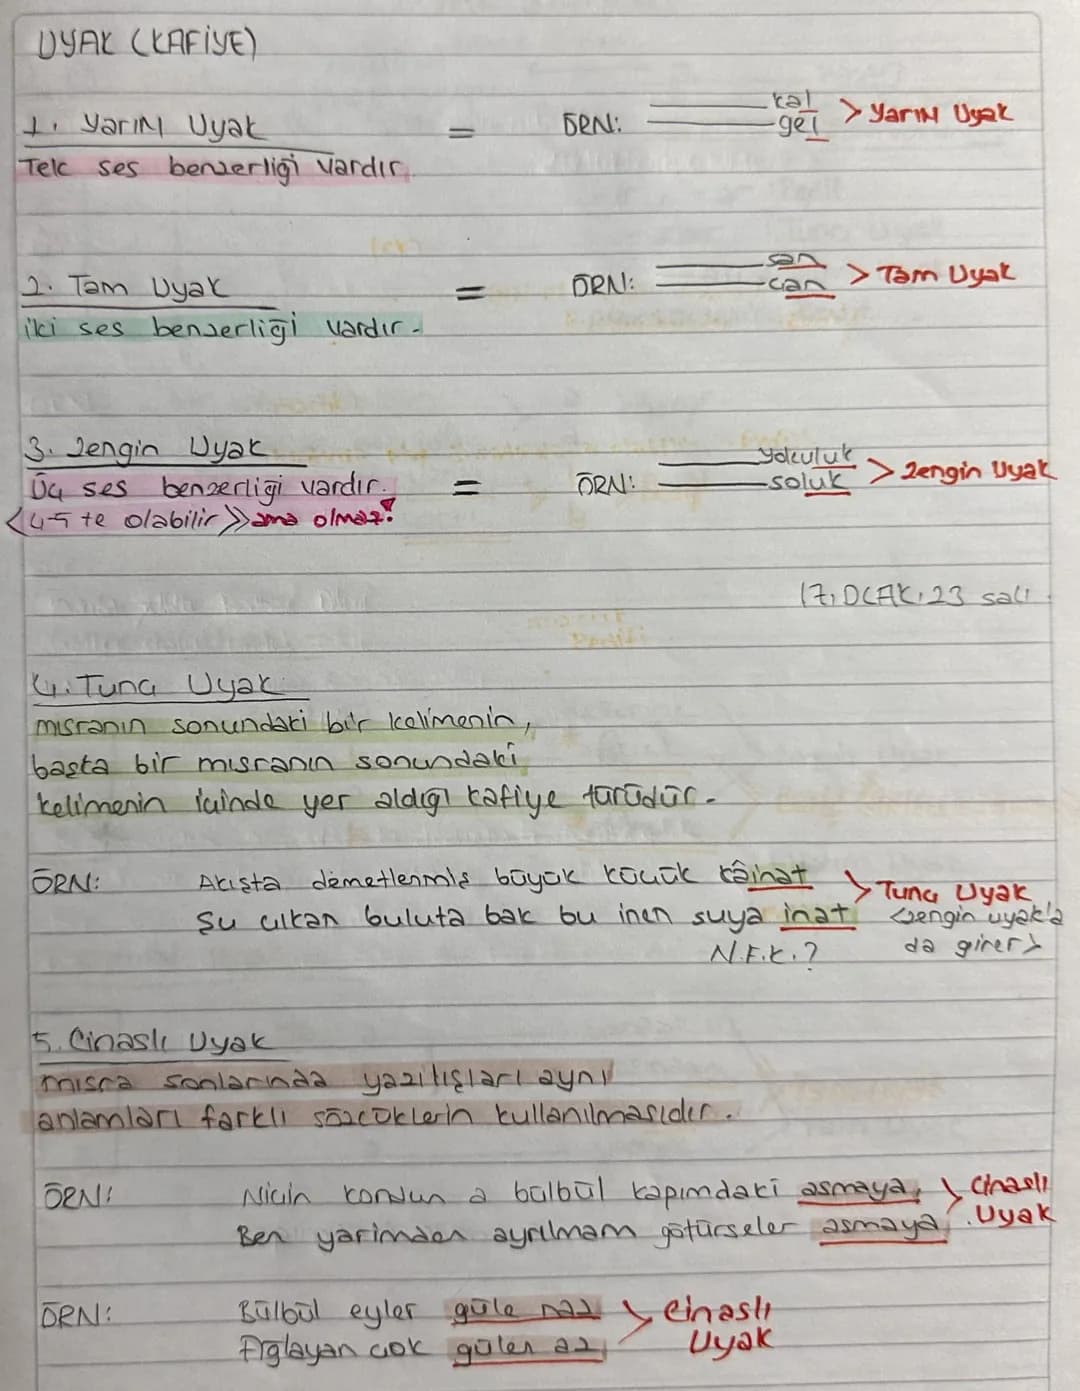 UYAK (KAFİYE)
1. Yarım Uyak = ÖRN: kal
gel > Yarım Uyak
Tek ses benzerliği vardır.
2. Tam Uyak = ÖRN: san
can > Tam Uyak
iki ses benzerliği vardır.
3. Zengin Uyak
Üç ses benzerliği vardır. = ÖRN: yokuluk
soluk > Zengin Uyak
<4-5 te olabilir>> ama olmaz!
17.OCAK.23 salı
4. Tunç Uyak
mısranın sonundaki bir kelimenin,
başta bir mısranın sonundaki
kelimenin içinde yer aldığı kafiye türüdür.
ÖRN: Akışta demetlenmiş büyük küçük kâinat
Şu çıkan buluta bak bu inen suya inat
> Tunç Uyak
<zengin uyak'a
da girer>
N.F.K.?
5. Cinaslı Uyak
mısra sonlarında yazılışları aynı
anlamları farklı sözcüklerin kullanılmasıdır.
ÖRN: Niçin kondun a bülbül kapımdaki asmaya,
Ben yarimden ayrılmam götürseler asmaya.
> Cinaslı
Uyak
ÖRN: Bülbül eyler güle naz
Ağlayan çok gülen az
> Cinaslı
Uyak